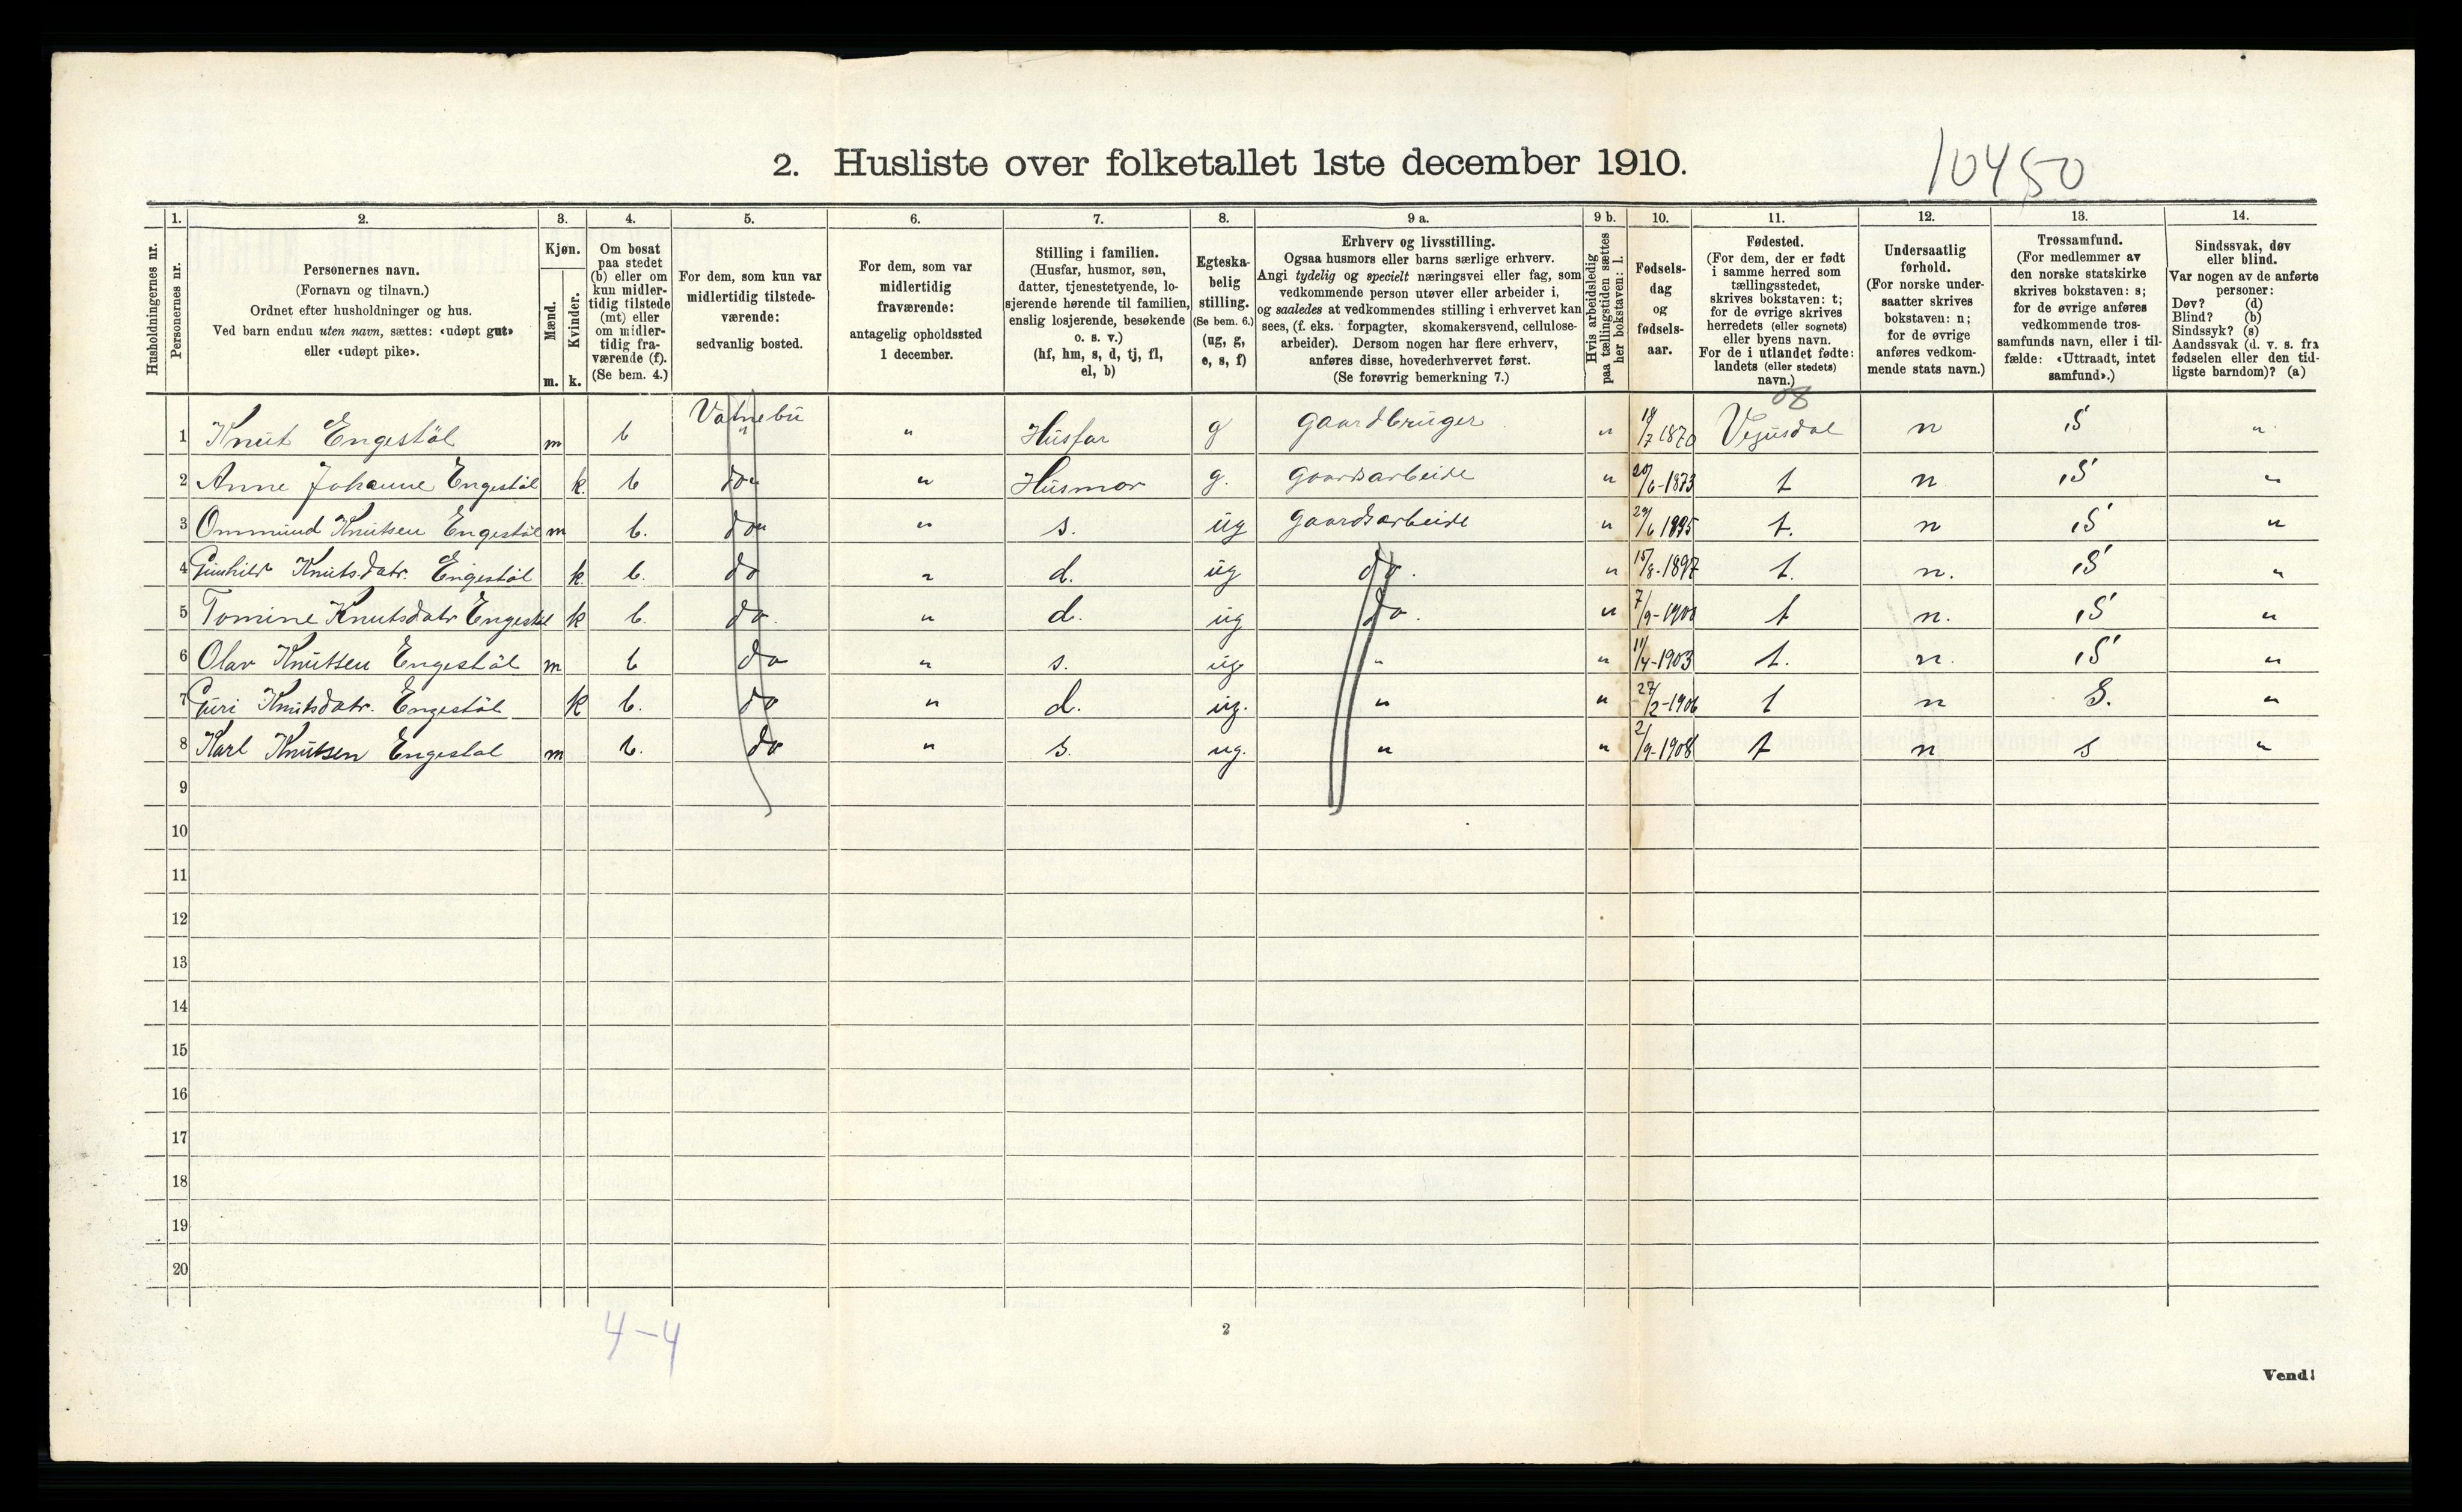 2. Husliste over folketallet 1ste december 1910.
10450
Husholdningernes nr.
1.
Personernes nr.
2.
Personernes navn.
(Fornavn og tilnavn.)
Ordnet efter husholdninger og hus.
Ved barn endnu uten navn, sættes: «udøpt gut»
eller «udøpt pike».
3.
Kjøn.
Mænd.
Kvinder.
m. k.
4.
Om bosat
paa stedet
(b) eller om
kun midler-
tidig tilstede
(mt) eller
om midler-
tidig fra-
værende (f).
(Se bem. 4.)
5.
For dem, som kun var
midlertidig tilstede-
værende:
sedvanlig bosted.
6.
For dem, som var
midlertidig
fraværende:
antagelig opholdssted
1 december.
7.
Stilling i familien.
(Husfar, husmor, søn,
datter, tjenestetyende, lo-
sjerende hørende til familien,
enslig losjerende, besøkende
o. s. v.)
(hf, hm, s, d, tj, fl,
el, b)
8.
Egteska-
belig
stilling.
(Se bem. 6.)
(ug, g,
e, s, f)
9 a.
Erhverv og livsstilling.
Ogsaa husmors eller barns særlige erhverv.
Angi tydelig og specielt næringsvei eller fag, som
vedkommende person utøver eller arbeider i,
og saaledes at vedkommendes stilling i erhvervet kan
sees, (f. eks. forpagter, skomakersvend, cellulose-
arbeider). Dersom nogen har flere erhverv,
anføres disse, hovederhvervet først.
(Se forøvrig bemerkning 7.)
9 b.
Hvis arbeidsledig
paa tællingstiden sættes
her bokstaven: l.
10.
Fødsels-
dag
og
fødsels-
aar.
11.
Fødested.
(For dem, der er født
i samme herred som
tællingsstedet,
skrives bokstaven: t;
for de øvrige skrives
herredets (eller sognets)
eller byens navn.
For de i utlandet fødte:
landets (eller stedets)
navn.)
12.
Undersaatlig
forhold.
(For norske under-
saatter skrives
bokstaven: n;
for de øvrige
anføres vedkom-
mende stats navn.)
13.
Trossamfund.
(For medlemmer av
den norske statskirke
skrives bokstaven: s;
for de øvrige anføres
vedkommende tros-
samfunds navn, eller i til-
fælde: «Uttraadt, intet
samfund».)
14.
Sindssvak, døv
eller blind.
Var nogen av de anførte
personer:
Døv? (d)
Blind? (b)
Sindssyk? (s)
Aandssvak (d. v. s. fra
fødselen eller den tid-
ligste barndom)? (a)
08
1 Knut Engestöl m b Vatnebu " " Husfar g gaardbruger " 18/7 1870 Vegusdal n S "
2 Anne Johanne Engestöl k. b do " " Husmor g. gaardsarbeide " 20/6-1873 t n S "
3 Ommund Knutsen Engestöl m b. do " " s. ug gaardsarbeide " 29/6 1895 t. n S "
4 Gunhild Knutsdatr. Engestöl k. b. do " d. ug do. " 15/8-1897 t. n. S "
5 Tomine Knutsdatr Engestöl k b. do. " d. ug do. " 7/9-1900 t n. S "
6 Olav Knutsen Engestöl m b do " s. ug " " 11/4-1903 t. n. S "
7 Guri Knutsdatr. Engestöl k b. do " d. ug. " " 27/2-1906 t n S. "
8 Karl Knutsen Engestøl m b. do " s. ug. " " 2/9-1908 t n s "
9
10
11
12
13
14
15
16
17
18
19
20
4-4
2
Vend!